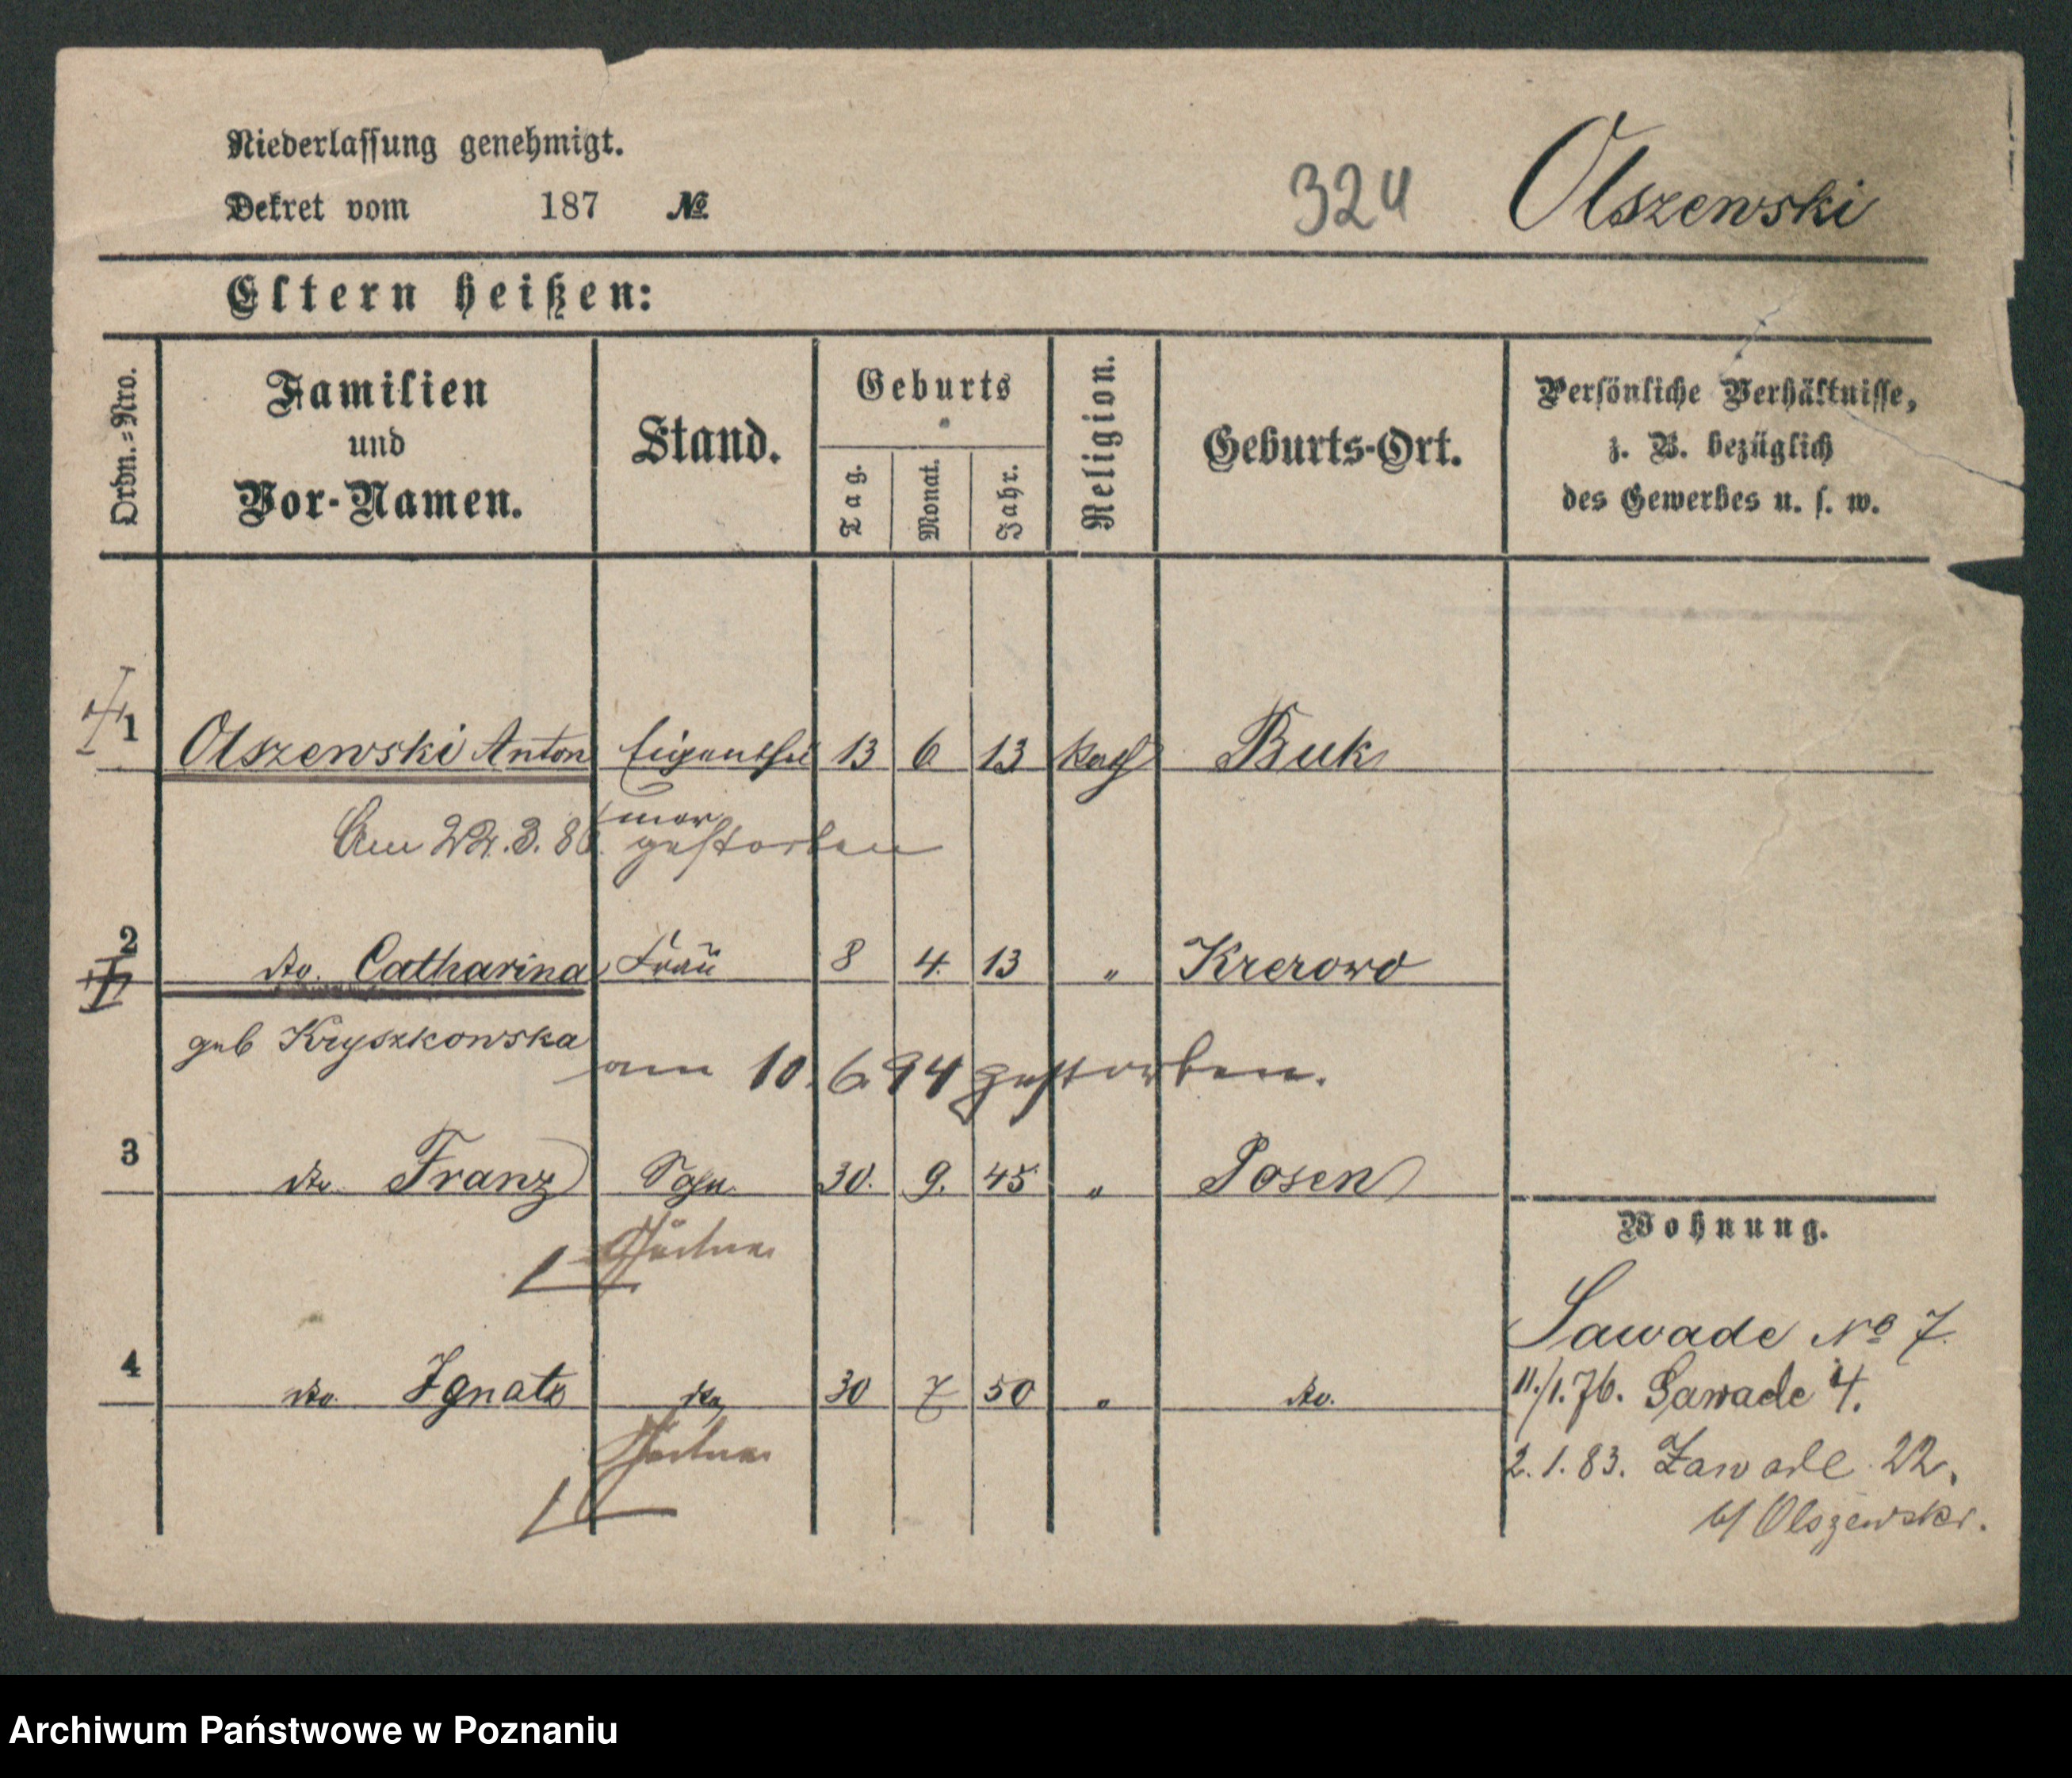 Niederlassung genehmigt.
Dekret vom 187 №
324 Olszewski
Eltern heißen:
Ordn.=Nro.
Familien und Vor-Namen.
Stand.
Geburts
Tag. Monat. Jahr.
Religion.
Geburts-Ort.
Persönliche Verhältnisse,
z. B. bezüglich
des Gewerbes u. s. w.
1 Olszewski Anton Eigenthü 13 6 13 Kath Buk
mer
Am 22.3.86. gestorben
2 dto. Catharina Frau 8 4. 13 " Krerowo
geb Kryszkowska
am 10. 6 94 gestorben.
3 dto. Franz Sohn 30. 9. 45 " Posen
Gärtner
4 dto. Ignatz dto 30 7 50 " dto.
Gärtner
Wohnung.
Sawade No 7.
11./1.76. Sawade 4.
2.1.83. Zawade 22.
b/ Olszewski.
Archiwum Państwowe w Poznaniu